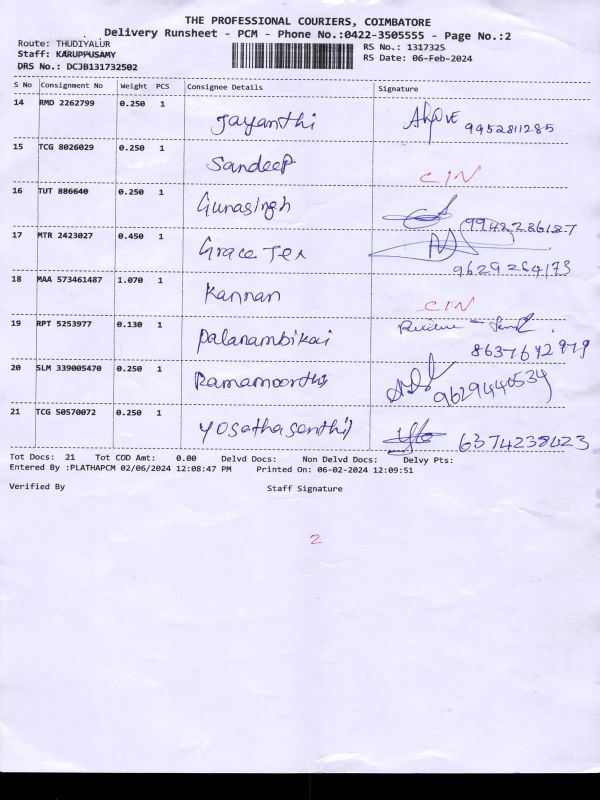 THE PROFESSIONAL COURIERS, COIMBATORE
Delivery Runsheet - PCM - Phone No.:0422-3505555 - Page No.:2
Route: THUDIYALUR
Staff: KARUPPUSAMY
DRS No.: DCJB131732502
RS No.: 1317325
RS Date: 06-Feb-2024
S No Consignment No Weight PCS Consignee Details Signature
14 RMD 2262799 0.250 1 Jayanthi 9952811285
15 TCG 8026029 0.250 1 Sandeep CIN
16 TUT 886640 0.250 1 Gunasingh 9942236187
17 MTR 2423027 0.450 1 Grace Tex 9629264173
18 MAA 573461487 1.070 1 Kannan CIN
19 RPT 5253977 0.130 1 Palanambikai 8637642979
20 SLM 339005470 0.250 1 Ramamoorthy 9629440534
21 TCG 50570072 0.250 1 Yosathasenthil 6374238423
Tot Docs: 21 Tot COD Amt: 0.00 Delvd Docs: Non Delvd Docs: Delvy Pts:
Entered By :PLATHAPCM 02/06/2024 12:08:47 PM Printed On: 06-02-2024 12:09:51
Verified By Staff Signature
2